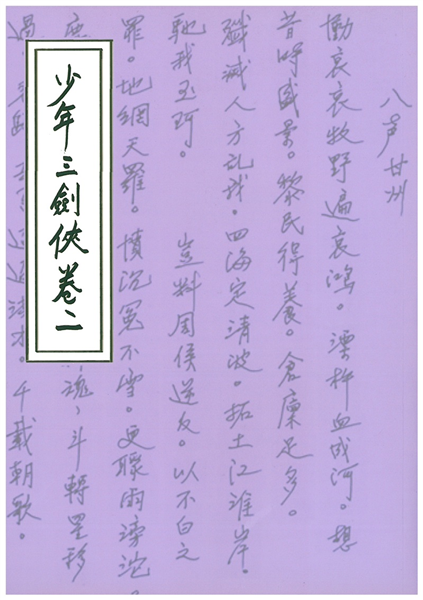 少年三劍俠卷二
八声甘州
慟哀哀牧野遍哀鴻。漂杵血成河。想
昔時盛景。黎民得養。倉廩足多。
殲滅人方乱。四海定清波。拓土江淮岸。
馳我玉珂。 豈料周侯逆反。以不白之
罪。地網天羅。憤沉冤不雪。更驟雨滂沱
魂、斗轉星移
過。千載朝歌。